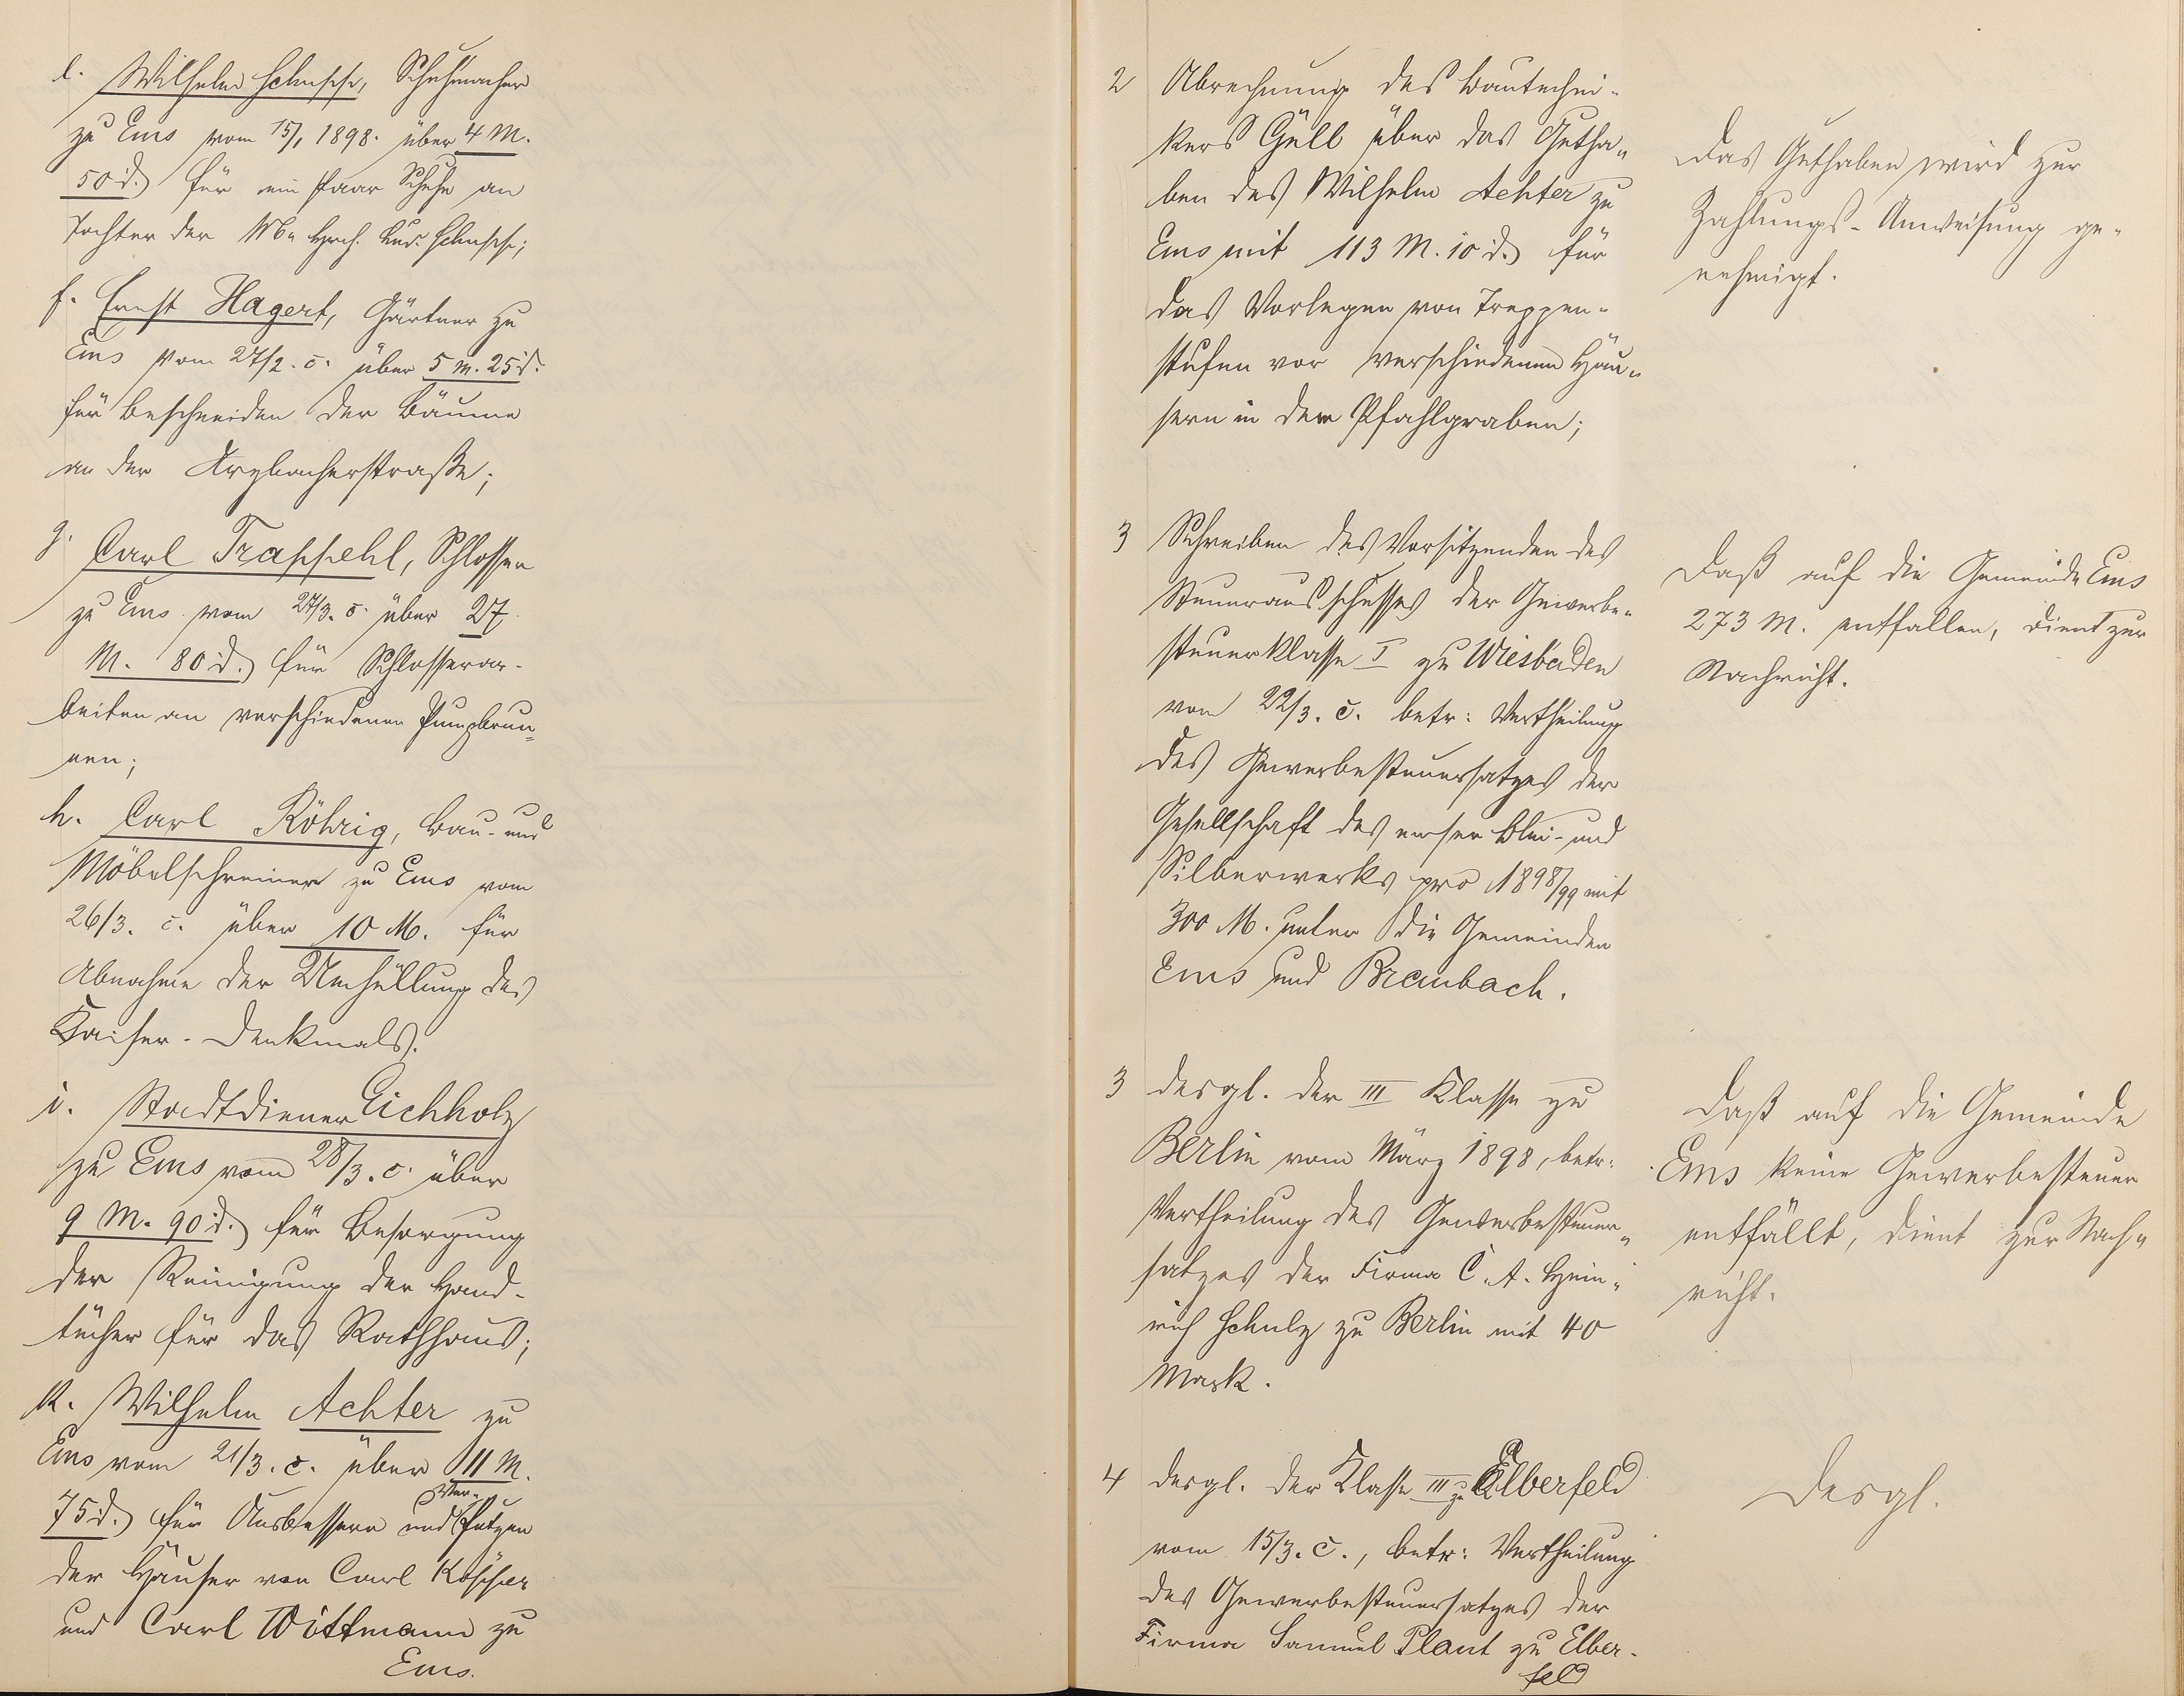 e. Wilhelm Schupp, Schuhmacher
zu Ems vom 15/1 1898. über 4 M.
50 d. für ein Paar Schuhe an
Tochter der Hrch. Lud. Schupp;
f. Ernst Hagert, Gärtner zu
Ems vom 27/2. c. über 5 M. 25 d.
für Beschneiden der Bäume
an der Arzbacherstraße;
g. Carl Trappehl, Schlosser
zu Ems vom 27/3. c. über 27
M. 80 d. für Schlosserar-
beiten an verschiedenen Pumpbrun-
nen;
h. Carl Röhrig, Bau- und
Möbelschreiner zu Ems vom
26/3. c. über 10 M. für
Abnahme der Umhüllung des
Kaiser-Denkmals.
i. Stadtdiener Eichholz
zu Ems vom 28/3. c. über
9 M. 90 d. für Besorgung
der Reinigung der Hand-
tücher für das Rathhaus;
k. Wilhelm Achter zu
Ems vom 21/3. c. über 11 M.
75 d. für Ausbessern und Ver-putzen
der Häuser von Carl
und Carl Wittmann zu
Ems.
2 Abrechnung des Bautechni-
kers Güll über das Gutha-
ben des Wilhelm Achter zu
Ems mit 113 M. 10 d. für
das Vorlegen von Treppen-
stufen vor verschiedenen Häu-
sern in dem Pfahlgraben;
Das Guthaben wird zur
Zahlungs-Anweisung ge-
nehmigt.
3 Schreiben des Vorsitzenden des
Steuerausschusses der Gewerbe-
steuerklasse I zu Wiesbaden
vom 22/3. c. betr: Vertheilung
des Gewerbesteuersatzes der
Gesellschaft des emser Blei- und
Silberwerks pro 1898/99 mit
300 M. unter die Gemeinden
Ems und Braubach.
Daß auf die Gemeinde Ems
273 M. entfallen, dient zur
Nachricht.
3 desgl. der III Klasse zu
Berlin vom März 1898, betr:
Vertheilung des Gewerbesteuer-
satzes der Firma C. A. Hein-
rich Schulz zu Berlin mit 40
Mark.
Daß auf die Gemeinde
Ems keine Gewerbesteuer
entfällt, dient zur Nach-
richt.
4 desgl. der Klasse III zu Elberfeld
vom 15/3. c., betr: Vertheilung
des Gewerbesteuersatzes der
Firma Samuel Plaut zu Elber-
feld
Desgl.